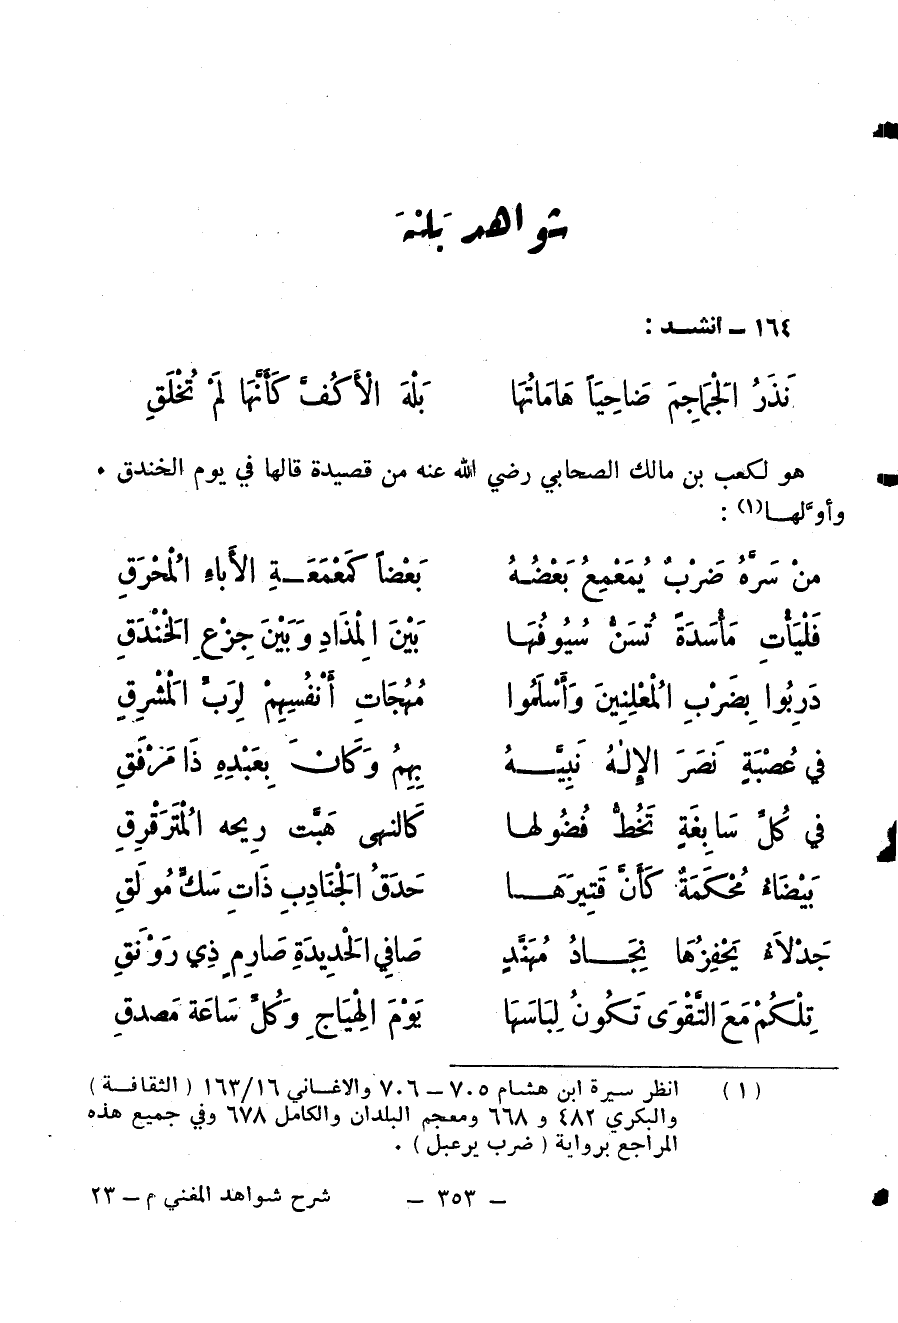 شواهد بَلْهَ
١٦٤ ــ أنشد :
نَذَرُ الجَمَاجِمَ ضَاحِيَاً هَامَاتُهَا بَلْهَ الْأَكُفَّ كَأَنَّهَا لَمْ تُخْلَقِ
هو لكعب بن مالك الصحابي رضي الله عنه من قصيدة قالها في يوم الخندق .
وأوَّلها(١) :
مَنْ سَرَّهُ ضَرْبٌ يُمَعْمِعُ بَعْضُهُ بَعْضَاً كَمَعْمَعَةِ الأَباءِ الْمُحْرَقِ
فَلْيَأْتِ مَأْسَدَةً تُسَنُّ سُيُوفُهَا بَيْنَ الْمِذَادِ وَبَيْنَ جِزْعِ الخَنْدَقِ
دَرِبُوا بِضَرْبِ الْمُعْلِنِينَ وَأَسْلَمُوا مُهُجَاتِ أَنْفُسِهِمْ لِرَبِّ الْمَشْرِقِ
في عُصْبَةٍ نَصَرَ الإِلٰهُ نَبِيَّهُ بِهِمُ وَكَانَ بِعَبْدِهِ ذَا مَرْفَقِ
في كُلِّ سَابِغَةٍ تَخُطُّ فُضُولها كَالنهى هَبَّت ريحه الْمُتَرَقْرِقِ
بَيْضَاءُ مُحْكَمَةٌ كَأَنَّ قَتِيرَهَا حَدَقُ الجَنَادِبِ ذَاتِ سَكٍّ مُولَقِ
جَدْلاَءُ يَحْفِزُهَا نِجَادُ مُهَنَّدٍ صَافِي الحَدِيدَةِ صَارِمٍ ذِي رَوْنَقِ
تِلْكُمْ مَعَ التَّقْوَى تَكُونُ لِبَاسَهَا يَوْمَ الهِيَاجِ وَكُلِّ سَاعَة مَصدقِ
(١) انظر سيرة ابن هشام ٧٠٥ ــ ٧٠٦ والاغاني ١٦٣/١٦ ( الثقافة )
والبكري ٤٨٢ و ٦٦٨ ومعجم البلدان والكامل ٦٧٨ وفي جميع هذه
المراجع برواية ( ضرب يرعبل ) .
ــ ٣٥٣ ــ شرح شواهد المغني م ــ ٢٣